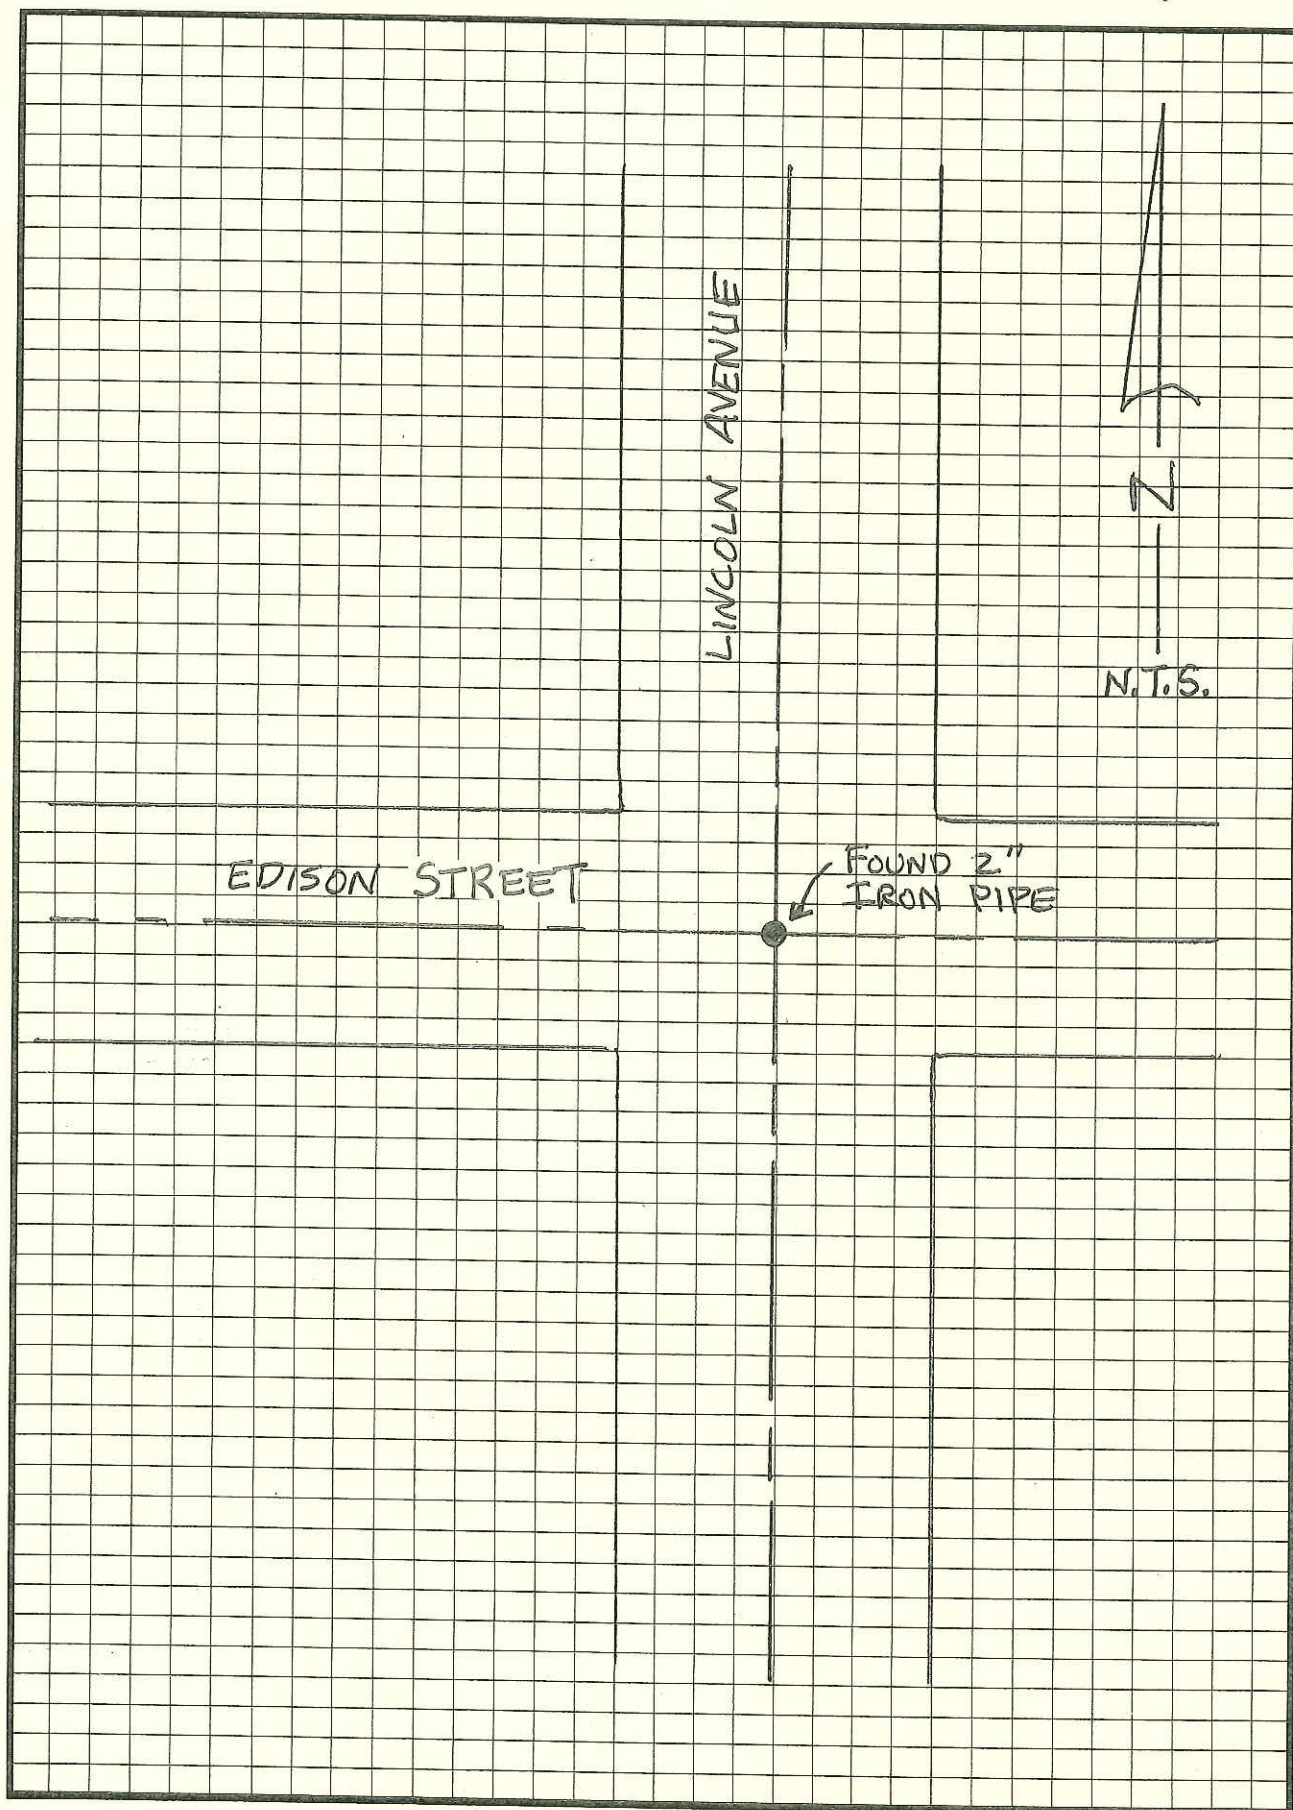 LINCOLN AVENUE
N
N.T.S.
EDISON STREET
FOUND 2"
IRON PIPE